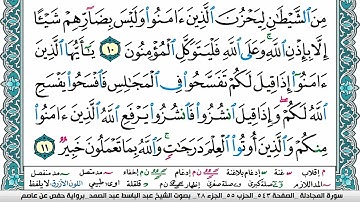 مِنَ ٱلشَّيْطَٰنِ لِيَحْزُنَ ٱلَّذِينَ ءَامَنُوا۟ وَلَيْسَ بِضَآرِّهِمْ شَيْـًٔا
إِلَّا بِإِذْنِ ٱللَّهِ ۚ وَعَلَى ٱللَّهِ فَلْيَتَوَكَّلِ ٱلْمُؤْمِنُونَ ١٠ يَٰٓأَيُّهَا ٱلَّذِينَ
ءَامَنُوٓا۟ إِذَا قِيلَ لَكُمْ تَفَسَّحُوا۟ فِى ٱلْمَجَٰلِسِ فَٱفْسَحُوا۟ يَفْسَحِ
ٱللَّهُ لَكُمْ ۖ وَإِذَا قِيلَ ٱنشُزُوا۟ فَٱنشُزُوا۟ يَرْفَعِ ٱللَّهُ ٱلَّذِينَ ءَامَنُوا۟
مِنكُمْ وَٱلَّذِينَ أُوتُوا۟ ٱلْعِلْمَ دَرَجَٰتٍ ۚ وَٱللَّهُ بِمَا تَعْمَلُونَ خَبِيرٌ ١١
سورة المجادلة الصفحة ٥٤٣ الحزب ٥٥ الجزء ٢٨ بصوت الشيخ عبد الباسط عبد الصمد برواية حفص عن عاصم